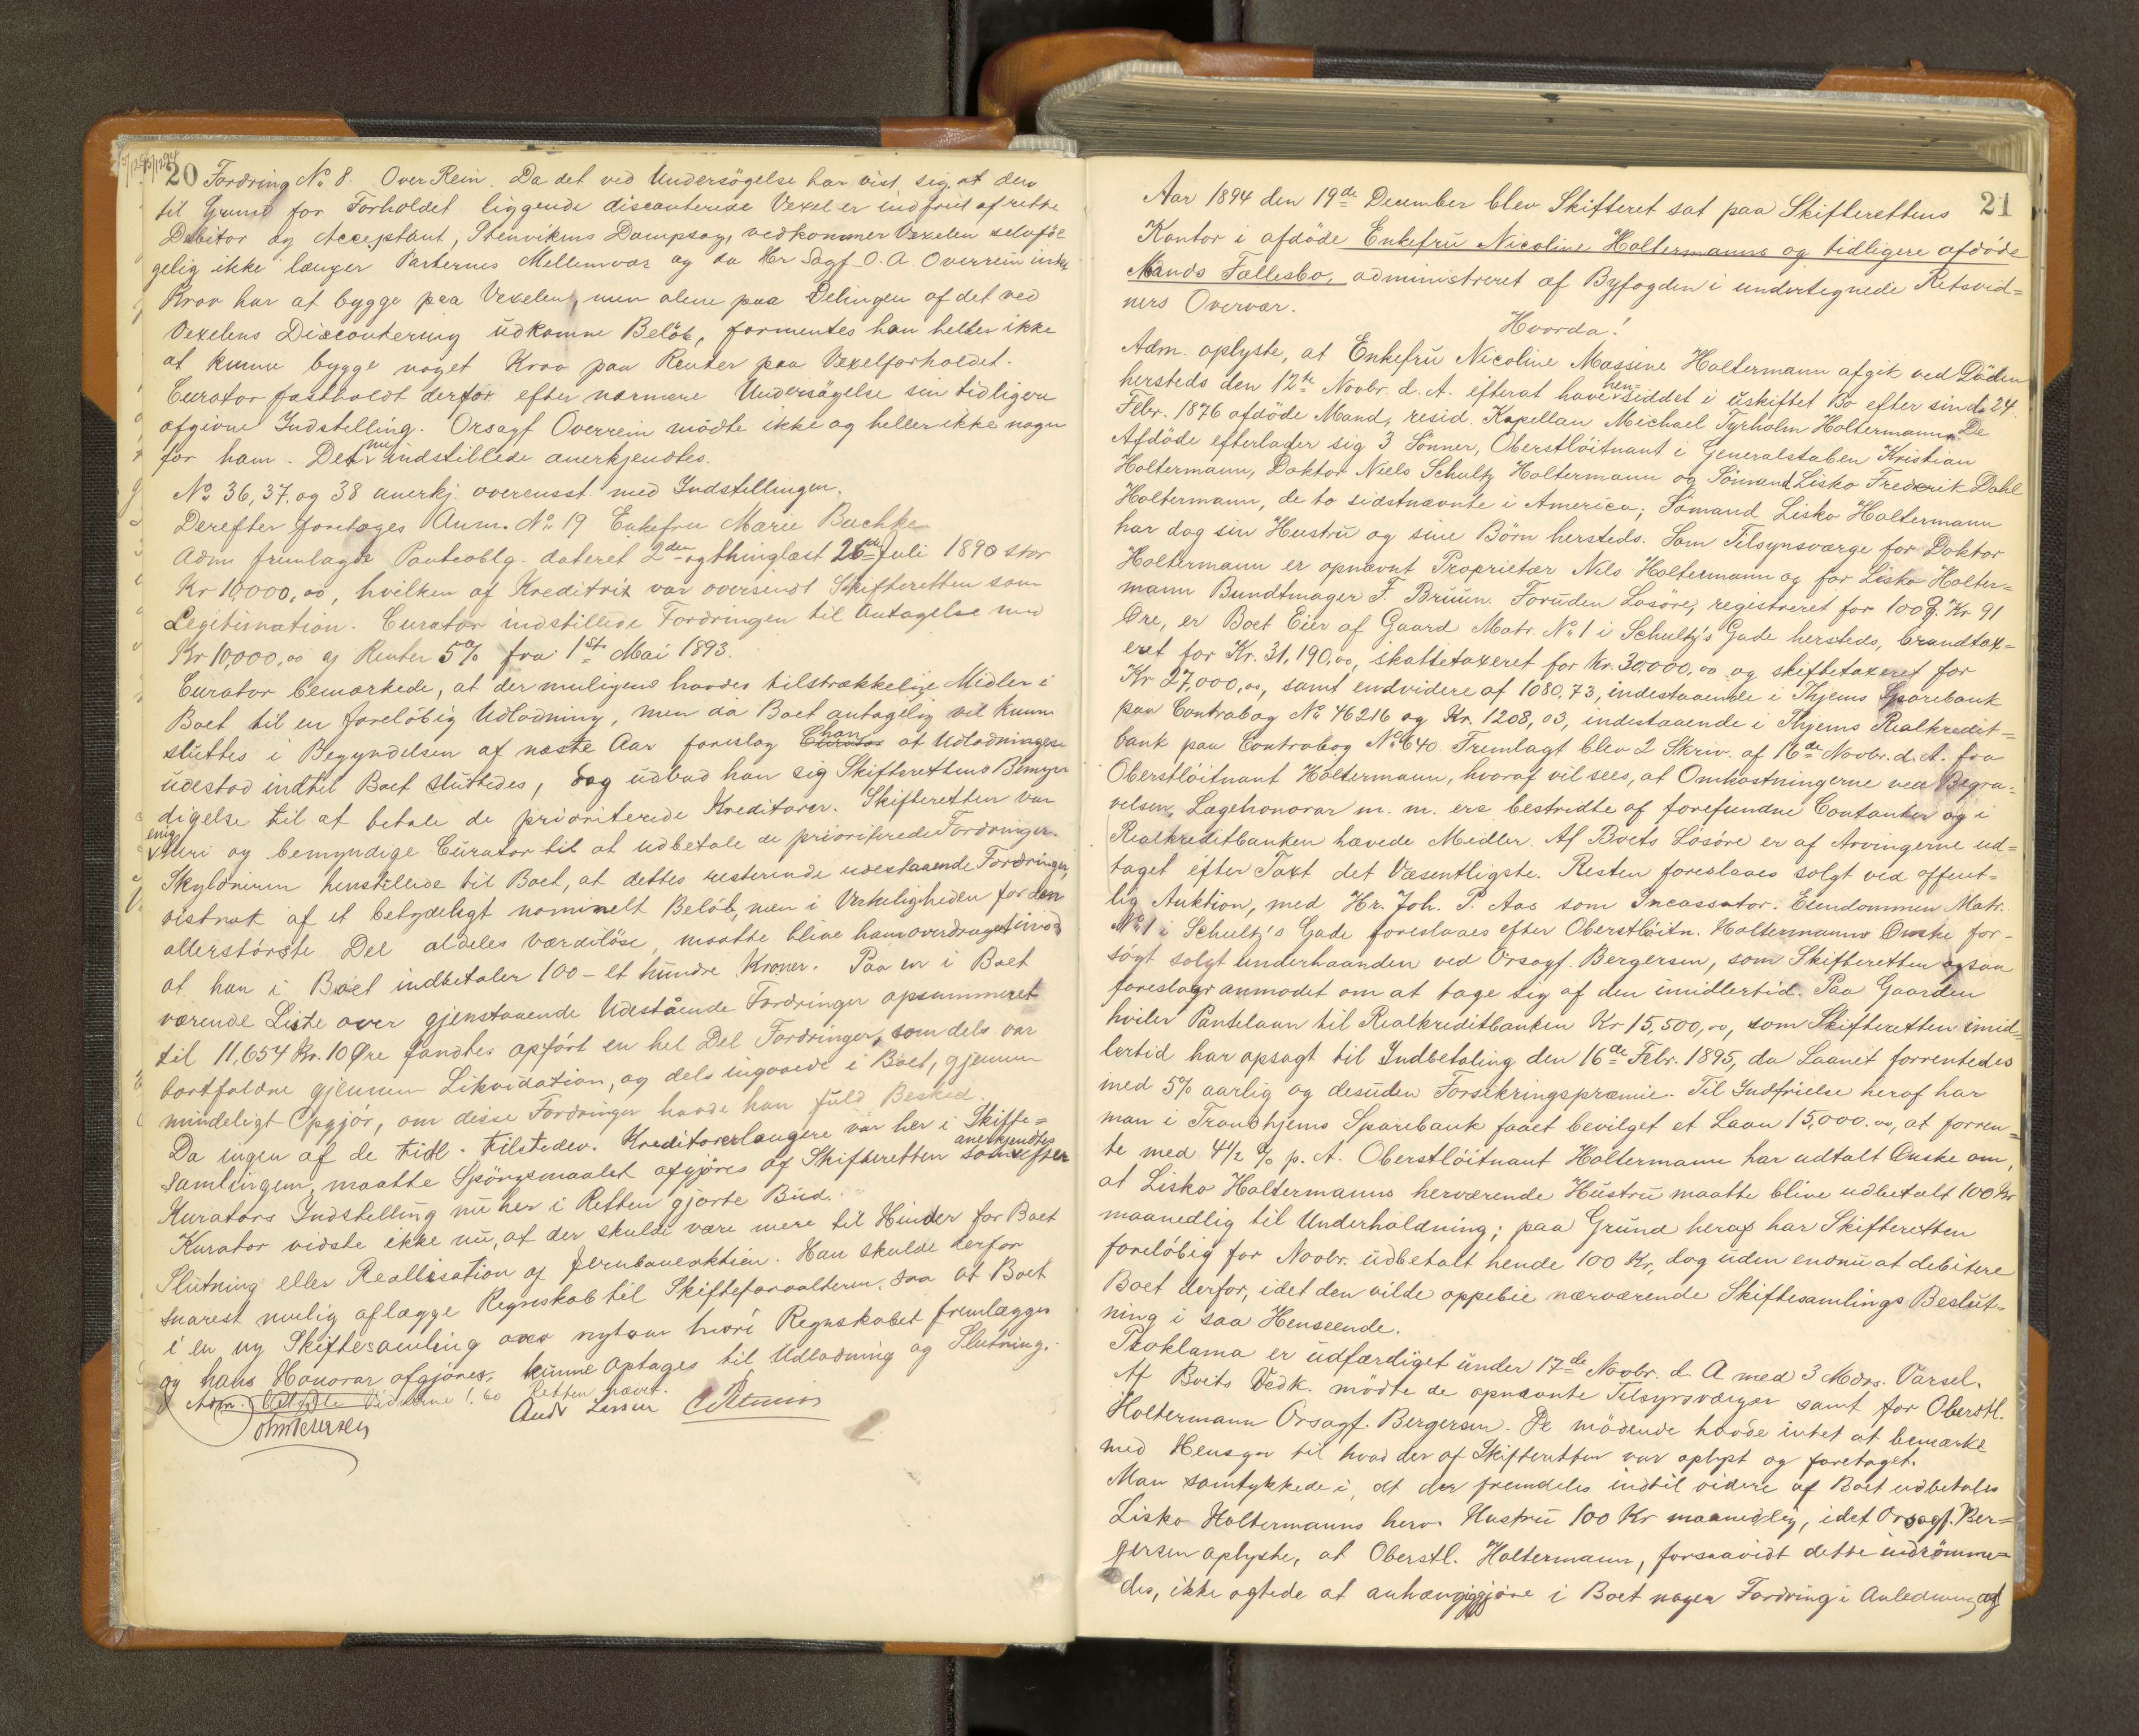 20
Fordring No 8. Over Rein. Da det ved Undersögelse har vist sig, at den
til Grund for Forholdet liggende discouterede Vexel er indfriet af rette
Debitor og Acceptant, Stenvikens Dampsag, vedkommer Vexelen selvföl
gelig ikke længer Parternes Mellemvær og da Hr Sagf O. A. Overrein intet
Krav har at bygge paa Vexelen, men alene paa Delingen af det ved
Vexelens Discontering udkomne Belöb, formentes han heller ikke
at kunne bygge noget Krav paa Renter paa Vexelforholdet.
Curator fastholdt derfor efter nærmere Undersögelse sin tidligere
afgivne Indstilling. Orsagf Overrein mödte ikke og heller ikke nogen
for ham. Det nu indstillede anerkjendtes.
No 36, 37, og 38 anerkj. overensst. med Indstillingen.
Derefter foretoges Anm. No 19 Enkefru Marie Bachke
Adm fremlagde Panteoblg. dateret 2den og thinglæst 26de Juli 1890 stor
Kr 10,000,00, hvilken af Kreditrix var oversendt Skifteretten som
Legitimation. Curator indstillede Fordringen til Antagelse med
Kr 10,000,00 og Renter 5% fra 1ste Mai 1893.
Curator bemærkede, at der muligens havdes tilstrækkelige Midler i
Boet til en foreløbig Udlodning, men da Boet antagelig vil kunne
sluttes i Begyndelsen af næste Aar foreslog han at Udlodningen
udestod indtil Boet sluttedes, dog udbad han sig Skifterettens Bemyn
digelse til at betale de prioriterede Kreditorer. Skifteretten var
enig heri og bemyndige Curator til at udbetale de prioriterede Fordringer.
Skyldneren henstillede til Boet, at dettes resterende udestaaende Fordringer,
vistnok af et betydeligt nominelt Beløb, men i Virkeligheden for den
allerstørste Del aldeles værdiløse, maatte blive ham overdraget imod
at han i Boet indbetaler 100 - et hundre Kroner. Paa en i Boet
værende Liste over gjenstaaende Udestående Fordringer opsummeret
til 11,654 Kr. 10 Øre fandtes opført en hel Del Fordringer, som dels var
bortfaldne gjennem Likvidation, og dels ingaaede i Boet, gjennem
mindeligt Opgjør, om desse Fordringer havde han fuld Besked.
Da ingen af de tidl. tilstedev. Kreditorer længere var her i Skifte=
samlingen, maatte Spørgsmaalet afgjøres af Skifteretten som anerkjendtes efter
Kurators Indstilling nu her i Retten gjorte Bud.
Kurator vidste ikke nu, at der skulde være mere til Hinder for Boet
Slutning eller Reallisation af Jernbaneaktien. Han skulde derfor
snarest mulig aflægge Regnskab til Skifteforvalteren, saa at Boet
i en ny Skiftesamling over nytaar hvori Regnskabet fremlægges
og hans Honorar afgjøres, kunne optages til Udlodning og Slutning.
Adm. betalte Vidnerne 1.60 Retten hævet.
Andr Larsen

21
Aar 1894 den 19de December blev Skifteret sat paa Skifterettens
Kontor i afdöde Enkefru Nicoline Holtermanns og tidligere afdöde
Mands Fællesbo, administreret af Byfogden i undertegnede Retsvid=
ners Overvær.
Hvorda!
Adm. oplyste, at Enkefru Nicoline Massine Holtermann afgik ved Döden
hersteds den 12te Novbr. d. A. efterat have hensiddet i uskiftet Bo efter sin d. 24.
Febr. 1876 afdöde Mand, resid. Kapellan Michael Tyrholm Holtermann. De
Afdöde efterlader sig 3 Sönner, Oberstlöitnant i Generalstaben Kristian
Holtermann, Doktor Niels Schultz Holtermann og Sömand Lisko Frederik Dahl
Holtermann, de to sidstnævnte i America; Sömand Lisko Holtermann
har dog sin Hustru og sine Börn hersteds. Som Tilsynsværge for Doktor
Holtermann er opnævnt Proprietær Nils Holtermann og for Lisko Holter=
mann Bundtmager F. Bruun. Foruden Losöre, registreret for 1008. Kr. 91
Øre, er Boet Eier af Gaard Matr. No 1 i Schultz's Gade hersteds, brandtax=
eret for Kr. 31,190,00, skattetaxeret for Kr. 30,000,00 og skiftetaxeret for
Kr 27,000,00, samt endvidere af 1080,73, indestaaende i Thjems Sparebank
paa Contrabog No 46216 og Kr. 1208,03, indestaaende i Thjems Realkredit=
bank paa Contrabog No 640. Fremlagt blev 2 Skriv. af 16de Novbr. d. A. fra
Oberstlöitnant Holtermann, hvoraf vil sees, at Omkostningerne ved Begra=
velsen, Lægehonorar m. m. ere bestridte af forefundne Contanter og i
Realkreditbanken hævede Meidler. Af Boets Lösöre er af Arvingerne ud=
taget efter Taxt det Væsentligste. Resten foreslaaes solgt ved offent=
lig Auktion, med Hr. Joh. P. Aas som Incassator. Eiendommen Matr.
No 1 i Schultz's Gade foreslaaes efter Oberstlöitn. Holtermanns Önske for-
sögt solgt underhaanden ved Orsagf. Bergersen, som Skifteretten ogsaa
foreslagr anmodet om at tage sig af den imidlertid. Paa Gaarden
hviler Pantelaan til Realkreditbanken Kr 15,500,00, som Skifteretten imid=
lertid har opsagt til Indbetaling den 16de Febr. 1895, da Laanet forrentedes
med 5% aarlig og desuden Forsikringspræmie. Til Indfrielse heraf har
man i Trondhjems Sparebank faaet bevilget et Laan 15,000.00, at forren=
te med 4½ % p. A. Oberstlöitnant Holtermann har udtalt Önske om,
at Lisko Holtermanns herværende Hustru maatte blive udbetalt 100 Kr
maanedlig til Underholdning; paa Grund heraf har Skifteretten
forelöbig for Novbr. udbetalt hende 100 Kr, dog uden endnu at debitere
Boet derfor, idet den vilde oppebie nærværende Skiftesamlings Beslut=
ning i saa Henseende.
Proklama er udfærdiget under 17de Novbr. d. A med 3 Mdrs. Varsel.
Af Boets Vedk. mödte de opnævnte Tilsynsværger samt for Oberstl.
Holtermann Orsagf. Bergersen. De mödende havde intet at bemærke
med Hensyn til hvad der af Skifteretten var oplyst og foretaget.
Man samtykkede i, at der fremdeles indtil videre af Boet udbetales
Lisko Holtermanns herv. Hustru 100 Kr maanedlig, idet Orsagf. Ber=
gersen oplyste, at Oberstl. Holtermann, forsaavidt dette indrömme=
des, ikke agtede at anhængiggjöre i Boet nogen Fordring i Anledning af